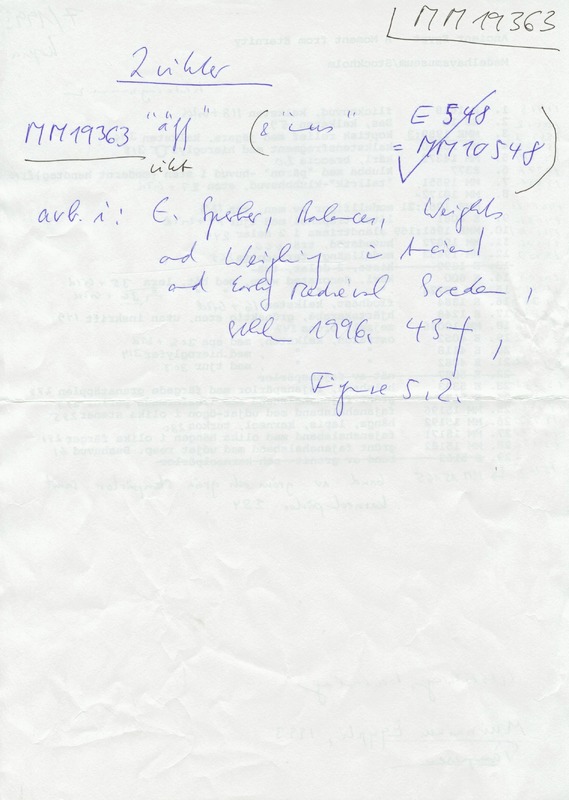 MM19363
2 vikter
MM19363 "äff" (& "
E 548
= MM10548)
vikt
avb. i: E. Sperber, Balances, Weights
and Weighing in Ancient
and Early Medieval Sweden,
Sthlm 1996. 43 f,
Figure 5.2.